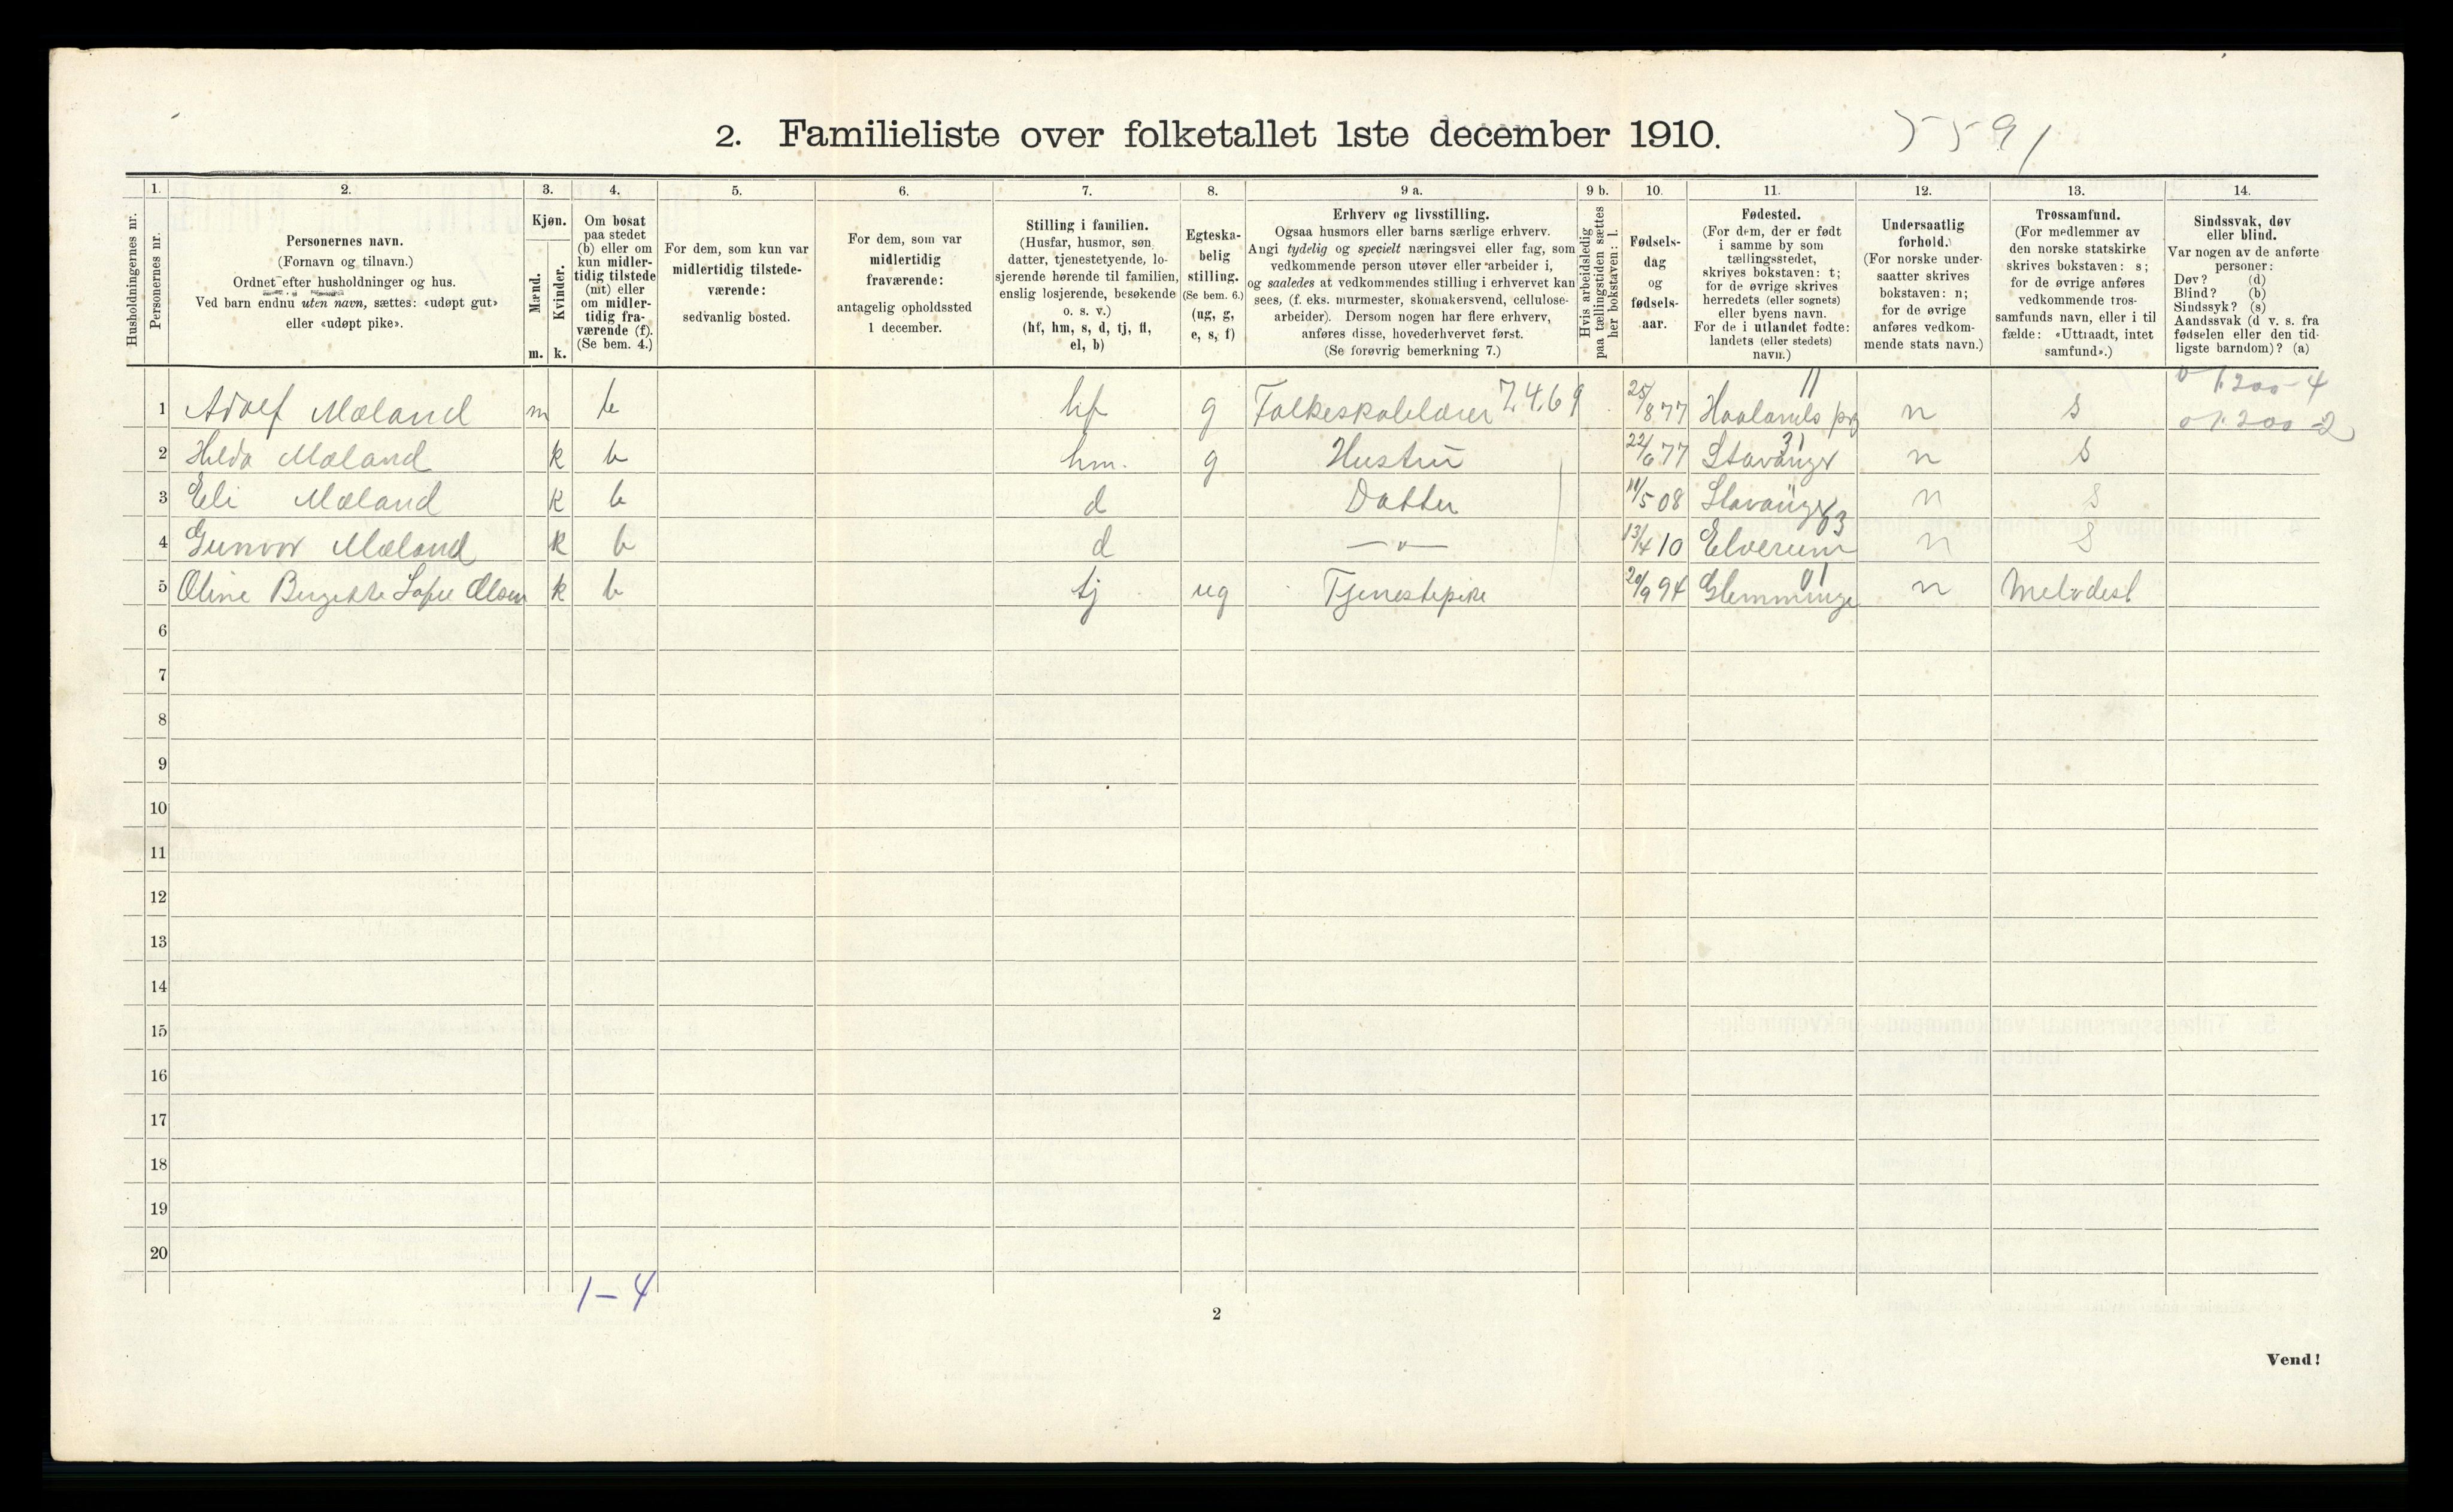 2. Familieliste over folketallet 1ste december 1910.
5591
Husholdningernes nr.
1.
Personernes nr.
2.
Personernes navn.
(Fornavn og tilnavn.)
Ordnet efter husholdninger og hus.
Ved barn endnu uten navn, sættes: «udøpt gut»
eller «udøpt pike».
3.
Kjøn.
Mænd.
Kvinder.
m. k.
4.
Om bosat
paa stedet
(b) eller om
kun midler-
tidig tilstede
(mt) eller
om midler-
tidig fra-
værende (f).
(Se bem. 4.)
5.
For dem, som kun var
midlertidig tilstede-
værende:
sedvanlig bosted.
6.
For dem, som var
midlertidig
fraværende:
antagelig opholdssted
1 december.
7.
Stilling i familien.
(Husfar, husmor, søn,
datter, tjenestetyende, lo-
sjerende hørende til familien,
enslig losjerende, besøkende
o. s. v.)
(hf, hm, s, d, tj, fl,
el, b)
8.
Egteska-
belig
stilling.
(Se bem. 6.)
(ug, g,
e, s, f)
9 a.
Erhverv og livsstilling.
Ogsaa husmors eller barns særlige erhverv.
Angi tydelig og specielt næringsvei eller fag, som
vedkommende person utøver eller arbeider i,
og saaledes at vedkommendes stilling i erhvervet kan
sees, (f. eks. murmester, skomakersvend, cellulose-
arbeider). Dersom nogen har flere erhverv,
anføres disse, hovederhvervet først.
(Se forøvrig bemerkning 7.)
9 b.
Hvis arbeidsledig
paa tællingstiden sættes
her bokstaven: l.
10.
Fødsels-
dag
og
fødsels-
aar.
11.
Fødested.
(For dem, der er født
i samme by som
tællingsstedet,
skrives bokstaven: t;
for de øvrige skrives
herredets (eller sognets)
eller byens navn.
For de i utlandet fødte:
landets (eller stedets)
navn.)
12.
Undersaatlig
forhold.
(For norske under-
saatter skrives
bokstaven: n;
for de øvrige
anføres vedkom-
mende stats navn.)
13.
Trossamfund.
(For medlemmer av
den norske statskirke
skrives bokstaven: s;
for de øvrige anføres
vedkommende tros-
samfunds navn, eller i til
fælde: «Uttraadt, intet
samfund».)
14.
Sindssvak, døv
eller blind.
Var nogen av de anførte
personer:
Døv? (d)
Blind? (b)
Sindssyk? (s)
Aandssvak (d v. s. fra
fødselen eller den tid-
ligste barndom)? (a)
11
1 Adolf Mæland m b hf g Folkeskolelærer 7.4.69 25/8 77 Haalands pg n s
31
2 Hilda Mæland k b hm. g Hustru 22/6 77 Stavanger n s
3 Eli Mæland k b d Datter 11/5 08 Stavanger n s
03
4 Gunvor Mæland k b d —"— 13/4 10 Elverum n s
01
5 Oline Bergitte Sofie Olsen k b tj ug Tjenestepike 20/9 94 Glemminge n Metodist
6
7
8
9
10
11
12
13
14
15
16
17
18
19
20
1-4
2
Vend!